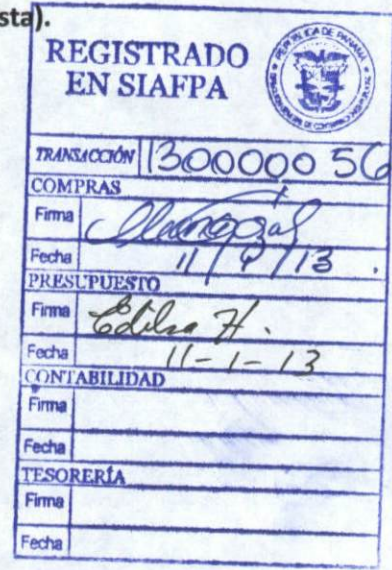 sta).
REGISTRADO
EN SIAFPA
REPUBLICA DE PANAMA
TRANSACCIÓN 1300000 56
COMPRAS
Firma
Fecha 11/ /13
PRESUPUESTO
Firma Edilsa H.
Fecha 11-1-13
CONTABILIDAD
Firma
Fecha
TESORERÍA
Firma
Fecha